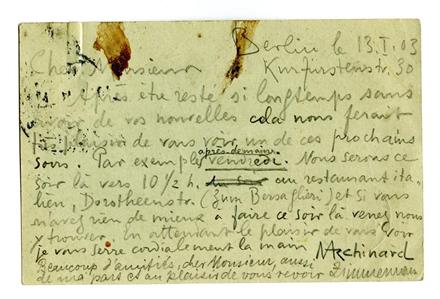 Berlin le 13.I.03
Cher Monsieur Kurfürstenstr. 30
Après être resté si longtemps sans
avoir de vos nouvelles cela nous ferait
plaisir de vous voir un de ces prochains
après demain
soirs. Par exemple vendredi. Nous serons ce
soir là vers 10 1/2 h. au restaurant ita-
lien, Dorotheenstr. (Zum Bersaglieri) et si vous
n'avez rien de mieux à faire ce soir là venez nous
y trouver. En attendant le plaisir de vous voir
je vous serre cordialement la main NArchinard
Beaucoup d'amitiés, cher Monsieur, aussi
de ma part et au plaisir de vous revoir Zimmermann